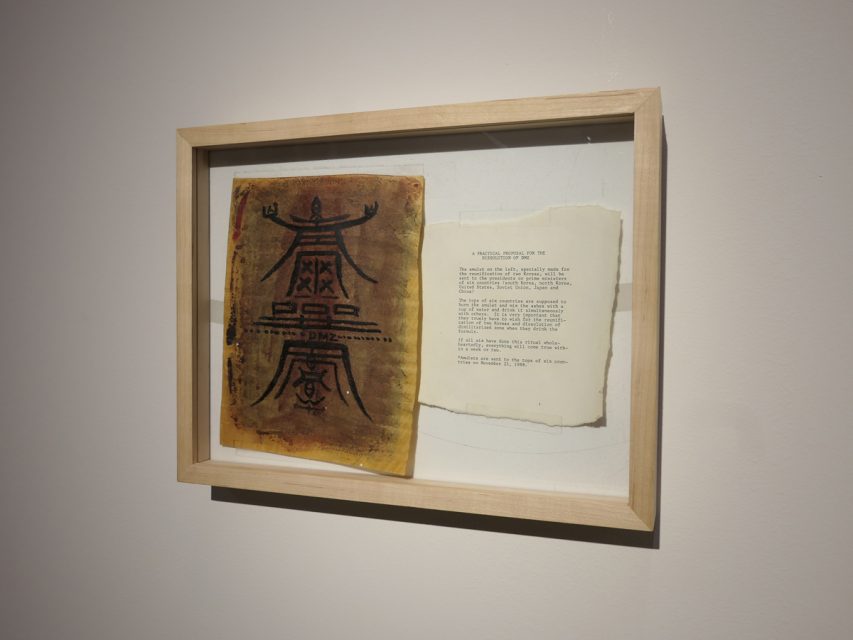 DMZ
A PRACTICAL PROPOSAL FOR THE
DISSOLUTION OF DMZ
The amulet on the left, specially made for
the reunification of two Koreas, will be
sent to the presidents or prime ministers
of six countries (south Korea, north Korea,
United States, Soviet Union, Japan and
China)
The tops of six countries are supposed to
burn the amulet and mix the ashes with a
cup of water and drink it simultaneously
with others. It is very important that
they truely have to wish for the reunifi-
cation of two Koreas and dissolution of
demilitarized zone when they drink the
formula.
If all six have done this ritual whole-
heartedly, everything will come true with-
in a week or two.
*Amulets are sent to the tops of six coun-
tries on November 21, 1988.